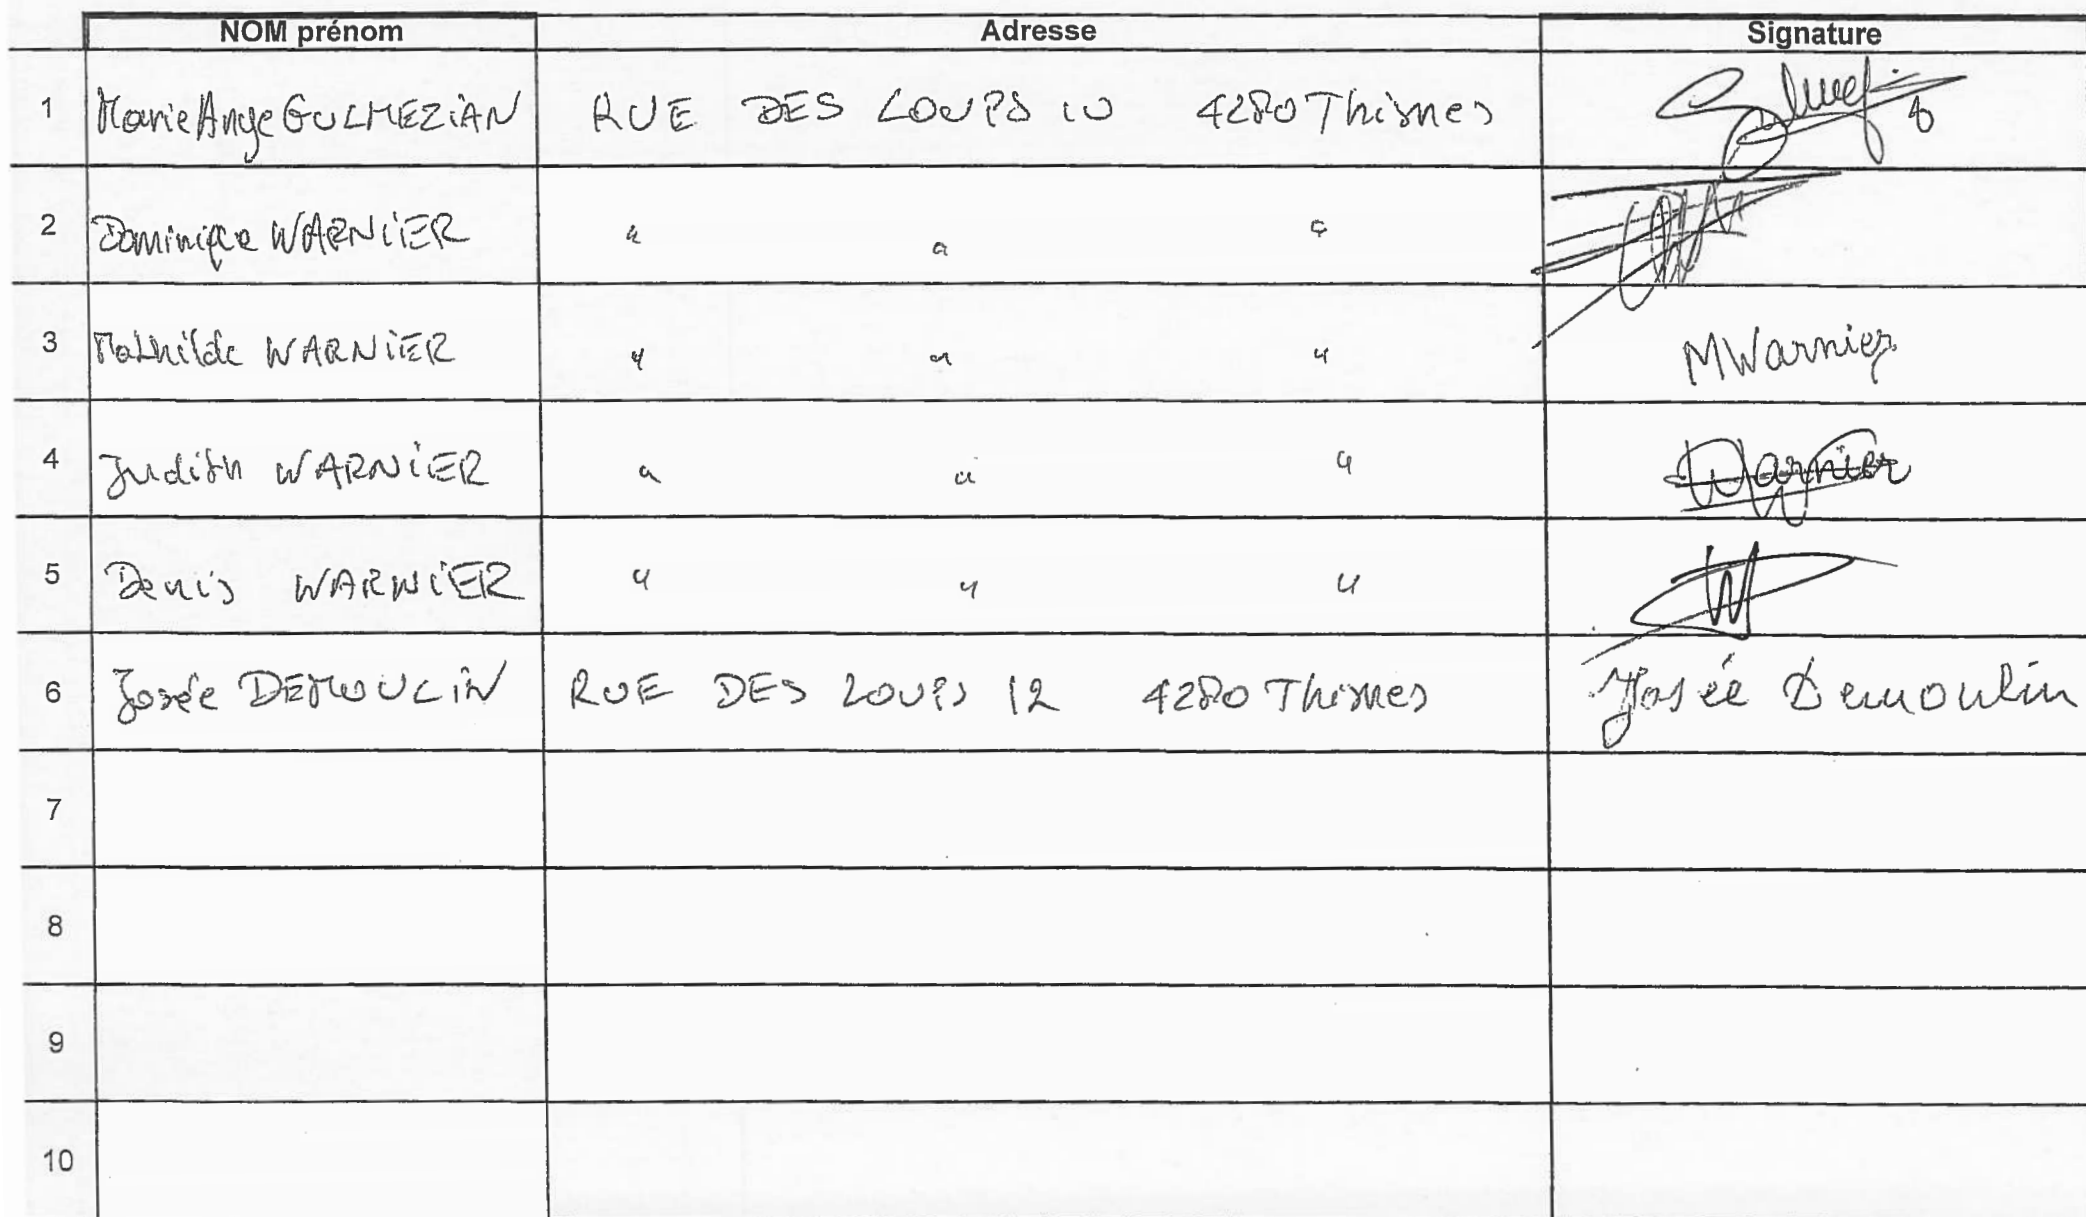 NOM prénom Adresse Signature
1 Marie Ange GULMEZIAN RUE DES LOUPS 10 4280 Thisnes
2 Dominique WARNIER " " "
3 Mathilde WARNIER " " " MWarnier
4 Judith WARNIER " " " Warnier
5 Denis WARNIER " " "
6 Josée DEMOULIN RUE DES LOUPS 12 4280 Thisnes Josée Demoulin
7
8
9
10